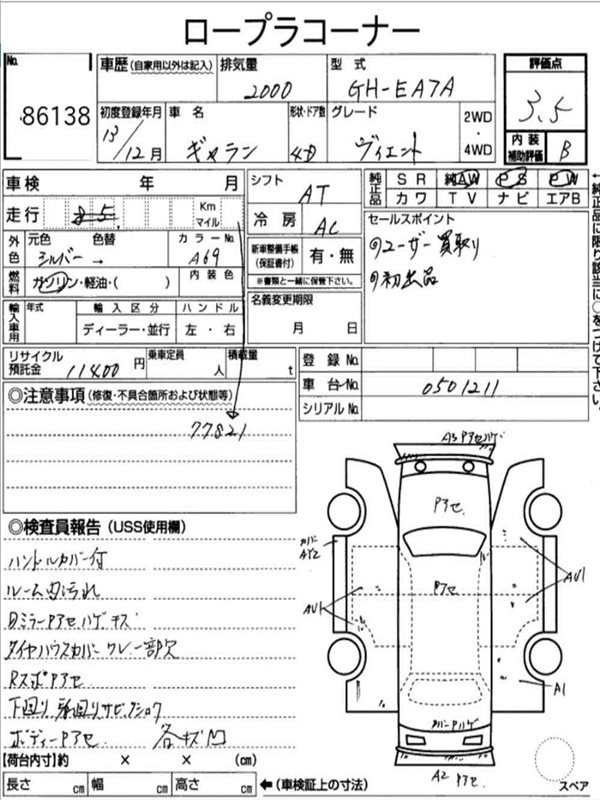 ロープラコーナー
No.
86138
車歴 (自家用以外は記入)
排気量
2000
型式
GH-EA7A
評価点
3.5
初度登録年月
13/12月
車名
ギャラン
形状・ドア数
4D
グレード
ヴィエント
2WD
・
4WD
内装
補助評価
B
車検 年 月
シフト
AT
純正品
SR 純AW PS PW
カワ TV ナビ エアB
走行
85
Km
マイル
冷房
AC
セールスポイント
①ユーザー買取り
①初出品
外色
元色 色替
シルバー →
カラーNo.
A69
新車整備手帳
(保証書付)
有・無
※書類と一緒に保管下さい。
燃料
ガソリン・軽油・( )
内装色
名義変更期限
月 日
輸入車用
年式
輸入区分
ディーラー・並行
ハンドル
左・右
リサイクル
預託金
11400 円
乗車定員
人
積載量
t
登録No.
車台No.
0501211
シリアルNo.
←純正品に限り該当に○をつけて下さい。
◎注意事項 (修復・不具合箇所および状態等)
77821
◎検査員報告 (USS使用欄)
ハンドルカバー付
ルーム内汚れ
DミラーPアセ ハゲ キズ
タイヤハウスカバー ワレ 一部欠
RスポPアセ
下回り
ボディーPアセ 各キズ凹
A3 Pアセ ハゲ
Pアセ
カバー
AY2
Pアセ
AU1
AU1
A1
カバーPハゲ
A2 Pアセ
スペア
【荷台内寸】約 × × (cm)
長さ cm 幅 cm 高さ cm ←(車検証上の寸法)